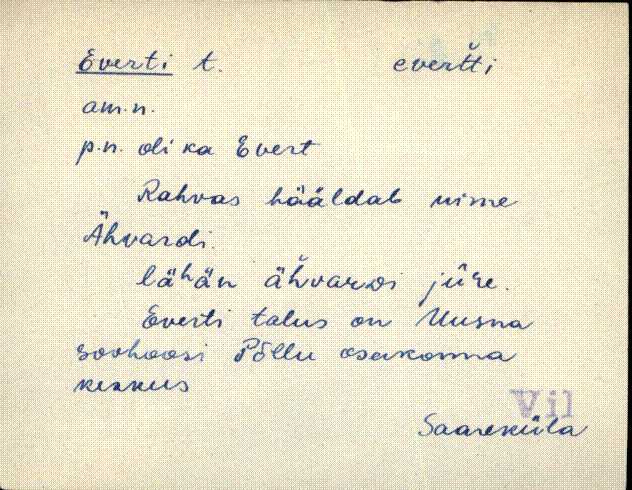 Everti t. evertti
am.n.
p.n. oli ka Evert
Rahvas hääldab nime
Ähvardi.
lähän ähvardi jüre.
Everti talus on Uusna
sovhoosi Põllu osakonna
keskus
Vil
Saareküla